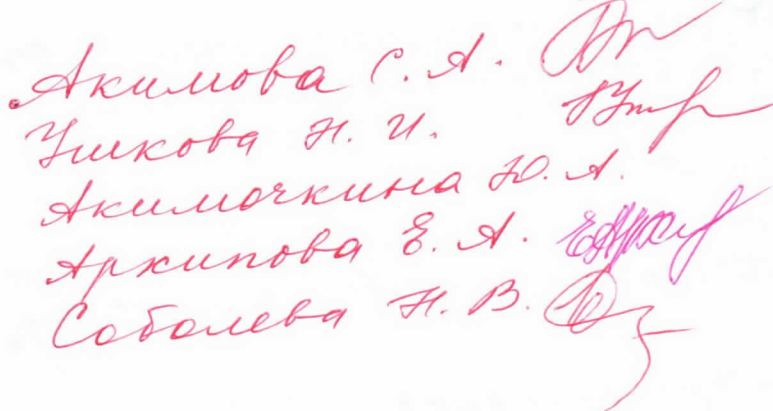 Акимова С. А.
Ушкова Н. И.
Акимочкина Ю. А.
Архипова Е. А.
Соболева Н. В.